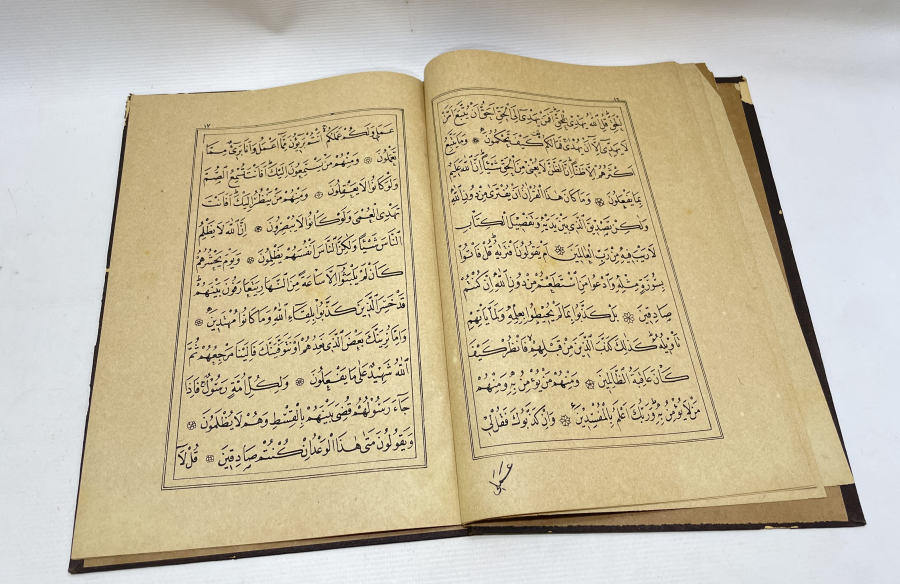 ١٦
لِلْحَقِّ قُلِ اللّٰهُ يَهْدِى لِلْحَقِّ اَفَمَنْ يَهْدِى اِلَى الْحَقِّ اَحَقُّ اَنْ يُتَّبَعَ اَمَّنْ
لَا يَهِدِّى اِلَّا اَنْ يُهْدٰى فَمَا لَكُمْ كَيْفَ تَحْكُمُونَ وَمَا يَتَّبِعُ
اَكْثَرُهُمْ اِلَّا ظَنًّا اِنَّ الظَّنَّ لَا يُغْنِى مِنَ الْحَقِّ شَيْئًا اِنَّ اللّٰهَ عَلِيمٌ
بِمَا يَفْعَلُونَ وَمَا كَانَ هٰذَا الْقُرْاٰنُ اَنْ يُفْتَرٰى مِنْ دُونِ اللّٰهِ
وَلٰكِنْ تَصْدِيقَ الَّذِى بَيْنَ يَدَيْهِ وَتَفْصِيلَ الْكِتَابِ
لَا رَيْبَ فِيهِ مِنْ رَبِّ الْعَالَمِينَ اَمْ يَقُولُونَ افْتَرٰيهُ قُلْ فَاْتُوا
بِسُورَةٍ مِثْلِهِ وَادْعُوا مَنِ اسْتَطَعْتُمْ مِنْ دُونِ اللّٰهِ اِنْ كُنْتُمْ
صَادِقِينَ بَلْ كَذَّبُوا بِمَا لَمْ يُحِيطُوا بِعِلْمِهِ وَلَمَّا يَاْتِهِمْ
تَاْوِيلُهُ كَذٰلِكَ كَذَّبَ الَّذِينَ مِنْ قَبْلِهِمْ فَانْظُرْ كَيْفَ
كَانَ عَاقِبَةُ الظَّالِمِينَ وَمِنْهُمْ مَنْ يُؤْمِنُ بِهِ وَمِنْهُمْ
مَنْ لَا يُؤْمِنُ بِهِ وَرَبُّكَ اَعْلَمُ بِالْمُفْسِدِينَ وَاِنْ كَذَّبُوكَ فَقُلْ لِى
عَمَلِى
١٧
عَمَلِى وَلَكُمْ عَمَلُكُمْ اَنْتُمْ بَرِيؤُنَ مِمَّا اَعْمَلُ وَاَنَا بَرِىءٌ مِمَّا
تَعْمَلُونَ وَمِنْهُمْ مَنْ يَسْتَمِعُونَ اِلَيْكَ اَفَاَنْتَ تُسْمِعُ الصُّمَّ
وَلَوْ كَانُوا لَا يَعْقِلُونَ وَمِنْهُمْ مَنْ يَنْظُرُ اِلَيْكَ اَفَاَنْتَ
تَهْدِى الْعُمْىَ وَلَوْ كَانُوا لَا يُبْصِرُونَ اِنَّ اللّٰهَ لَا يَظْلِمُ
النَّاسَ شَيْئًا وَلٰكِنَّ النَّاسَ اَنْفُسَهُمْ يَظْلِمُونَ وَيَوْمَ يَحْشُرُهُمْ
كَاَنْ لَمْ يَلْبَثُوا اِلَّا سَاعَةً مِنَ النَّهَارِ يَتَعَارَفُونَ بَيْنَهُمْ
قَدْ خَسِرَ الَّذِينَ كَذَّبُوا بِلِقَاءِ اللّٰهِ وَمَا كَانُوا مُهْتَدِينَ
وَاِمَّا نُرِيَنَّكَ بَعْضَ الَّذِى نَعِدُهُمْ اَوْ نَتَوَفَّيَنَّكَ فَاِلَيْنَا مَرْجِعُهُمْ ثُمَّ
اللّٰهُ شَهِيدٌ عَلٰى مَا يَفْعَلُونَ وَلِكُلِّ اُمَّةٍ رَسُولٌ فَاِذَا
جَاءَ رَسُولُهُمْ قُضِىَ بَيْنَهُمْ بِالْقِسْطِ وَهُمْ لَا يُظْلَمُونَ
وَيَقُولُونَ مَتٰى هٰذَا الْوَعْدُ اِنْ كُنْتُمْ صَادِقِينَ قُلْ لَا